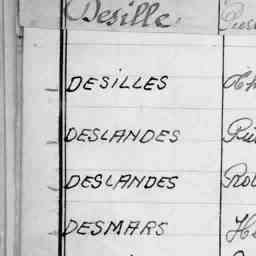 Desille.
DESILLES
DESLANDES
DESLANDES
DESMARS